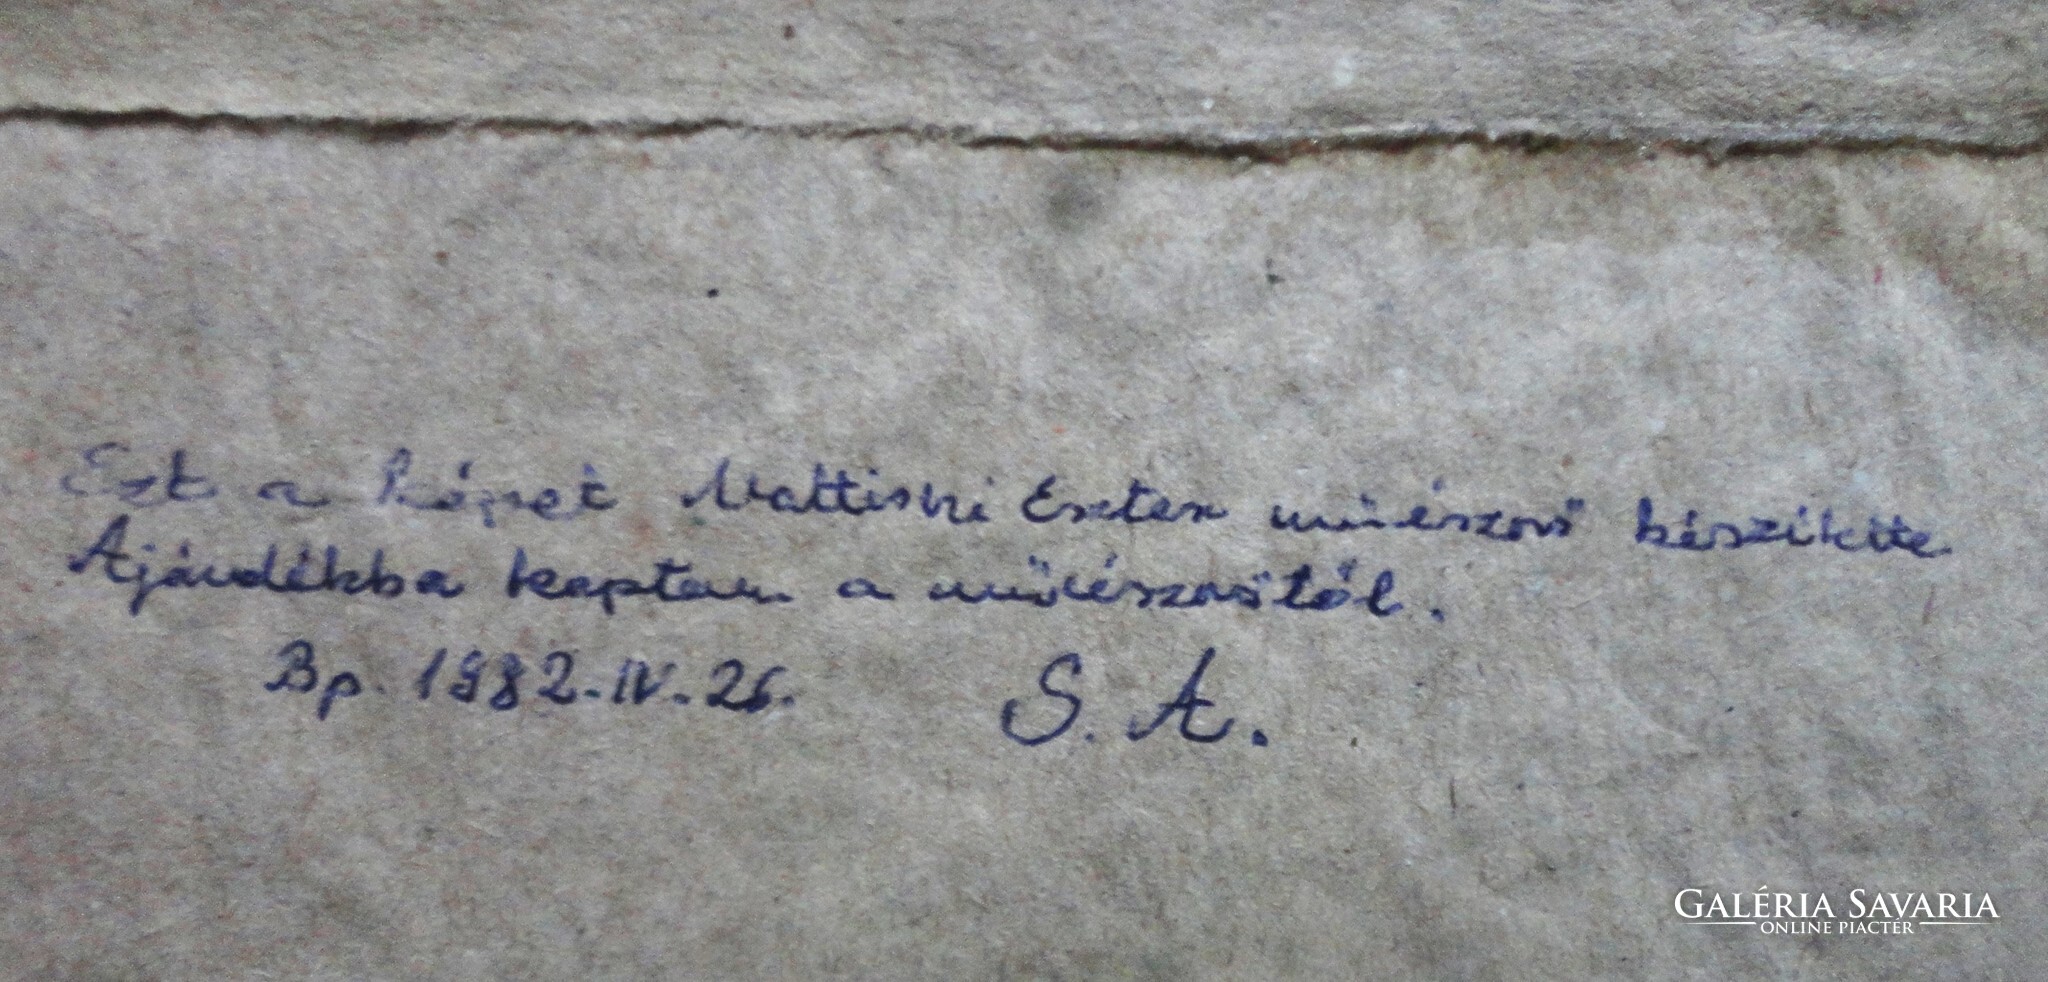 Ezt a képet Mattioni Eszter művésznő készítette
Ajándékba kaptam a művésznőtől.
Bp. 1982.IV.26. S. A.
GALÉRIA SAVARIA
ONLINE PIACTÉR